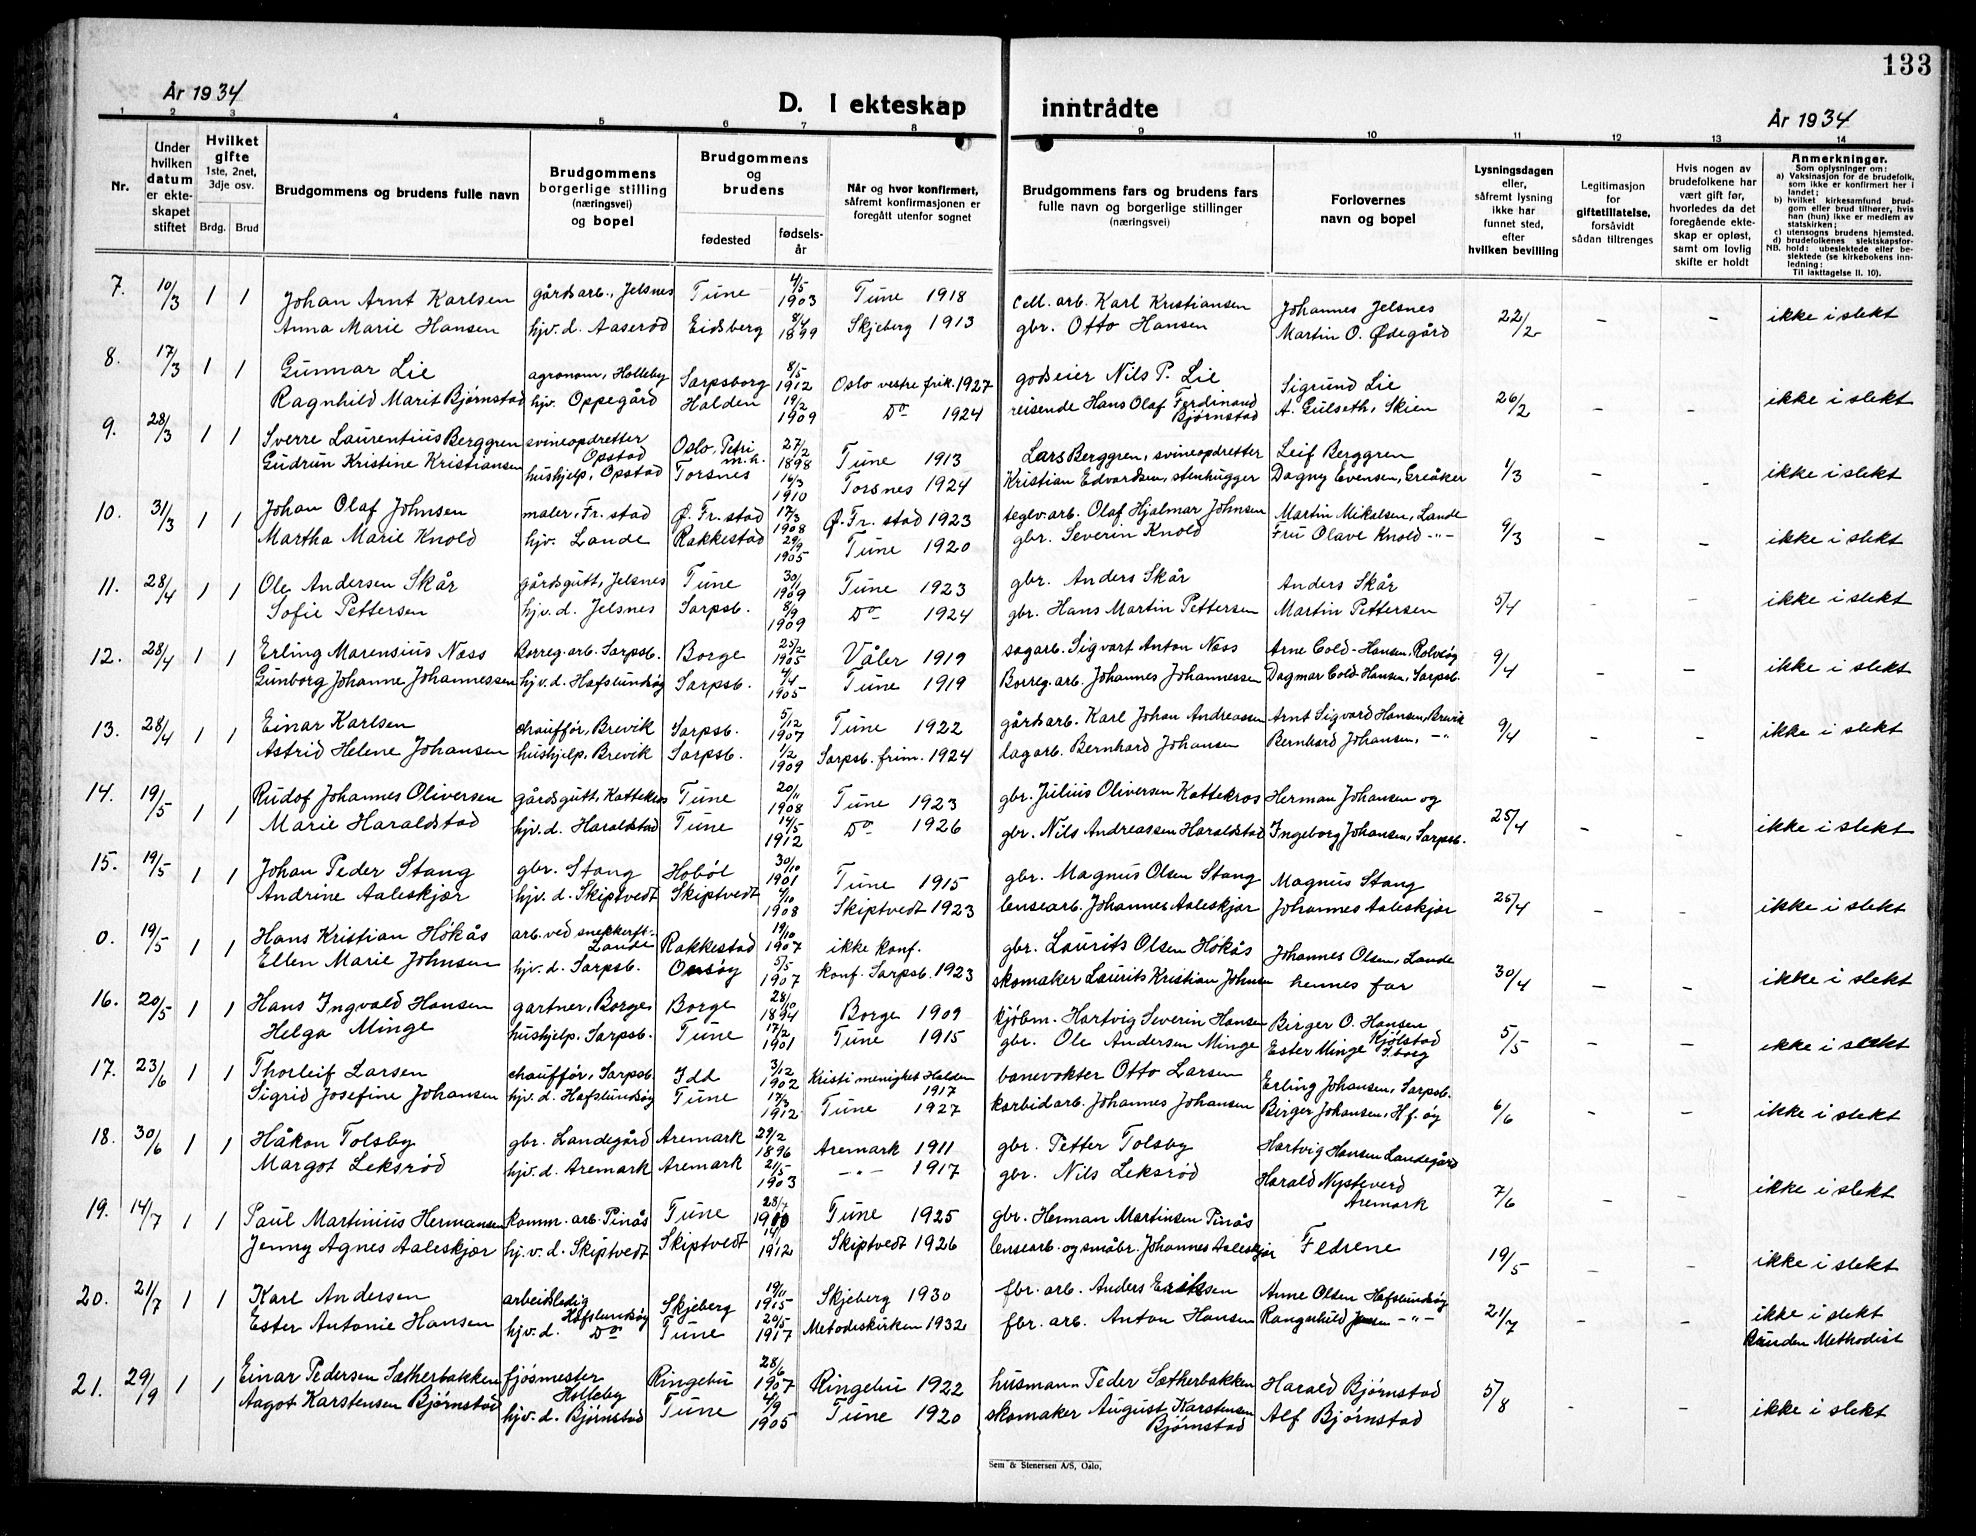 133
År 1934
D. I ekteskap inntrådte
År 1934
1 2 3 4 5 6 7 8 9 10 11 12 13 14
Nr.
Under hvilken datum er ekteskapet stiftet
Hvilket gifte 1ste, 2net, 3dje osv.
Brdg. Brud
Brudgommens og brudens fulle navn
Brudgommens borgerlige stilling (næringsvei) og bopel
Brudgommens og brudens
fødested
fødselsår
Når og hvor konfirmert, såfremt konfirmasjonen er foregått utenfor sognet
Brudgommens fars og brudens fars fulle navn og borgerlige stillinger (næringsvei)
Forlovernes navn og bopel
Lysningsdagen eller, såfremt lysning ikke har funnet sted, efter hvilken bevilling
Legitimasjon for giftetillatelse, forsåvidt sådan tiltrenges
Hvis nogen av brudefolkene har vært gift før, hvorledes da det foregående ekteskap er opløst, samt om lovlig skifte er holdt
Anmerkninger.
Som oplysninger om:
a) Vaksinasjon for de brudefolk, som ikke er konfirmert her i landet;
b) hvilket kirkesamfund brudgom eller brud tilhører, hvis han (hun) ikke er medlem av statskirken;
c) utensogns brudens hjemsted.
d) brudefolkenes slektskapsforhold: ubeslektede eller beslektede (se kirkebokens innledning:
NB. Til iakttagelse II. 10).
7. 10/3 1 1 Johan Arnt Karlsen gårdsarb., Jelsnes Tune 4/5 1903 Tune 1918 Cell. arb. Karl Kristiansen Johannes Jelsnes 22/2 - - ikke i slekt
Anna Marie Hansen hjv. d. Aaserød Eidsberg 8/4 1899 Skjeberg 1913 gbr. Otto Hansen Martin O. Ødegård
8. 17/3 1 1 Gunnar Lie agronom, Holleby Sarpsborg 8/5 1912 Oslo vestre frik. 1927 godseier Nils P. Lie Sigrund Lie 26/2 - - ikke i slekt
Ragnhild Marit Bjørnstad hjv. Oppegård Halden 19/2 1909 Do 1924 reisende Hans Olaf Ferdinand Bjørnstad A. Gulseth, Skien
9. 28/3 1 1 Sverre Laurentius Berggren svineopdretter Opstad Oslo, Petri m.h. 27/2 1898 Tune 1913 Lars Berggren, svineopdretter Leif Berggren 1/3 - - ikke i slekt
Gudrun Kristine Kristiansen hushjelp, Opstad Torsnes 16/3 1910 Torsnes 1924 Kristian Edvardsen, stenhugger Dagny Evensen, Greåker
10. 31/3 1 1 Johan Olaf Johnsen maler, Fr. stad Ø. Fr. stad 17/3 1908 Ø. Fr. stad 1923 teglv. arb. Olaf Hjalmar Johnsen Martin Mikalsen, Lande 9/3 - - ikke i slekt
Martha Marie Knold hjv. Lande Rakkestad 29/9 1905 Tune 1920 gbr. Severin Knold Fru Olave Knold -"-
11. 28/4 1 1 Ole Andersen Skår gårdsgutt, Jelsnes Tune 30/11 1909 Tune 1923 gbr. Anders Skår Anders Skår 5/4 - - ikke i slekt
Sofie Pettersen hjv. d. Jelsnes Sarpsb. 8/9 1909 Do 1924 gbr. Hans Martin Pettersen Martin Pettersen
12. 28/4 1 1 Erling Marensius Næss Borreg. arb. Sarpsb. Borge 25/2 1905 Våler 1919 sagarb. Sigvart Anton Næss Arne Cold-Hansen, Rolvsøy 9/4 - - ikke i slekt
Gunborg Johanne Johannessen hjv. d. Hafslundsøy Sarpsb. 4/4 1905 Tune 1919 Borreg. arb. Johannes Johannessen Dagmar Cold-Hansen, Sarpsb.
13. 28/4 1 1 Einar Karlsen chauffør, Brevik Sarpsb. 5/12 1907 Tune 1922 gårdsarb. Karl Johan Andreassen Arnt Sigvard Hansen, Brevik 9/4 - - ikke i slekt
Astrid Helene Johansen hushjelp, Brevik Sarpsb. 1/2 1909 Sarpsb. frim. 1924 lagarb. Bernhard Johansen Bernhard Johansen, -"-
14. 19/5 1 1 Rudof Johannes Oliversen gårdsgutt, Kattekros Tune 20/11 1908 Tune 1923 gbr. Julius Oliversen Kattekros Herman Johansen og 25/4 - - ikke i slekt
Marie Haraldstad hjv. d. Haraldstad Tune 14/5 1912 Do 1926 gbr. Nils Andreassen Haraldstad Ingeborg Johansen, Sarpsb.
15. 19/5 1 1 Johan Peder Stang gbr. Stang Hobøl 30/10 1901 Tune 1915 gbr. Magnus Olsen Stang Magnus Stang 25/4 - - ikke i slekt
Andrine Aaleskjær hjv. d. Skiptvedt Skiptvedt 4/10 1908 Skiptvedt 1923 lensearb. Johannes Aaleskjær Johannes Aaleskjær
0. 19/5 1 1 Hans Kristian Høkås arb. ved snekkerft. Lande Rakkestad 19/10 1907 ikke konf. gbr. Laurits Olsen Høkås Johannes Olsen, Lande 30/4 - - ikke i slekt
Ellen Marie Johnsen hjv. d. Sarpsb. Onsøy 5/5 1907 konf. Sarpsb. 1923 skomaker Laurits Kristian Johnsen hennes far
16. 20/5 1 1 Hans Ingvald Hansen gartner, Borge Borge 28/10 1894 Borge 1909 kjøbm. Hartvig Severin Hansen Birger O. Hansen Kjølstad 5/5 - - ikke i slekt
Helga Minge hushjelp, Sarpsb. Tune 17/2 1901 Tune 1915 gbr. Ole Andersen Minge Ester Minge
17. 23/6 1 1 Thorleif Larsen chauffør, Sarpsb. Idd 3/12 1902 Kristi menighet Halden 1917 banevokter Otto Larsen Erling Johansen, Sarpsb. 6/6 - - ikke i slekt
Sigrid Josefine Johansen hjv. d. Hafslundsøy Tune 17/3 1912 Tune 1927 karbidarb. Johannes Johansen Birger Johansen, Hf. øy
18. 30/6 1 1 Håkon Tolsby gbr. Landegård Aremark 29/2 1896 Aremark 1911 gbr. Petter Tolsby Hartvig Hansen Landegård 7/6 - - ikke i slekt
Margot Leksrød hjv. d. Aremark Aremark 21/5 1903 -"- 1917 gbr. Nils Leksrød Harald Nysteverd Aremark
19. 14/7 1 1 Paul Martinius Hermansen komm. arb. Pinås Tune 28/7 1910 Tune 1925 gbr. Herman Martinsen Pinås Fedrene 19/5 - - ikke i slekt
Jenny Agnes Aaleskjær hj.v.d. Skiptvedt Skiptvedt 1912 Skiptvedt 1926 lensearb. og småbr. Johannes Aaleskjær
20. 21/7 1 1 Karl Andersen arbeidsledig Hafslundsøy Skjeberg 19/11 1915 Skjeberg 1930 fbr. arb. Anders Eriksen Anne Olsen Hafslundsøy 21/7 - - ikke i slekt
Ester Antonie Hansen hjv. d. Do Tune 20/5 1917 Metodiskirken 1932 fbr. arb. Anton Hansen Rangnhild Jensen -"- Bruden Methodist
21. 29/9 1 1 Einar Pedersen Sætherbakken fjøsmester Holleby Ringebu 28/6 1907 Ringebu 1922 husmann Peder Sætherbakken Harald Bjørnstad 5/8 - - ikke i slekt
Aagot Karstensen Bjørnstad hjv. d. Bjørnstad Tune 4/9 1905 Tune 1920 skomaker August Karstensen Bjørnstad Alf Bjørnstad
Sem & Stenersen A/S, Oslo.